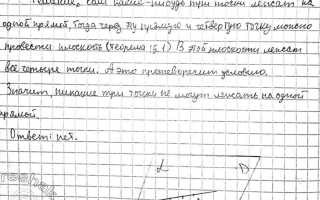 если какие-нибудь три точки лежат на
одной прямой, тогда через эту прямую и четвертую точку можно
провести плоскость (теорема 15.1) В этой плоскости лежат
все четыре точки. А это противоречит условию.
Значит, никакие три точки не могут лежать на одной
прямой.
Ответ: нет.
α
D